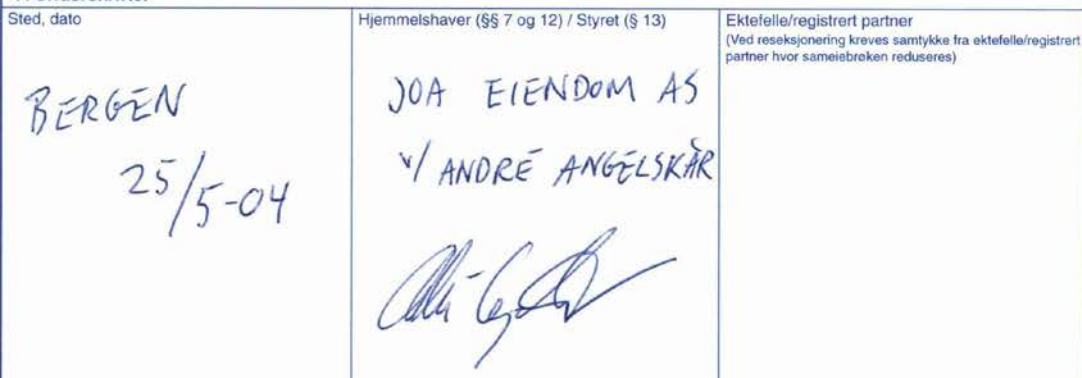 Sted, dato
Hjemmelshaver (§§ 7 og 12) / Styret (§ 13)
Ektefelle/registrert partner
(Ved reseksjonering kreves samtykke fra ektefelle/registrert
partner hvor sameiebrøken reduseres)
BERGEN
25/5-04
JOA EIENDOM AS
v/ ANDRÉ ANGELSKÅR